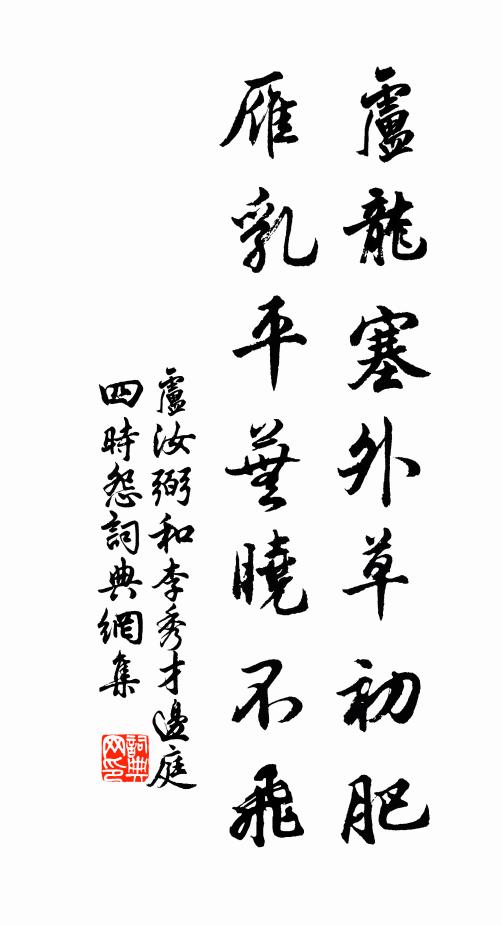 盧龍塞外草初肥
雁乳平蕪曉不飛
盧汝弼和李秀才邊庭
四時怨詞典網集
詞典
网印